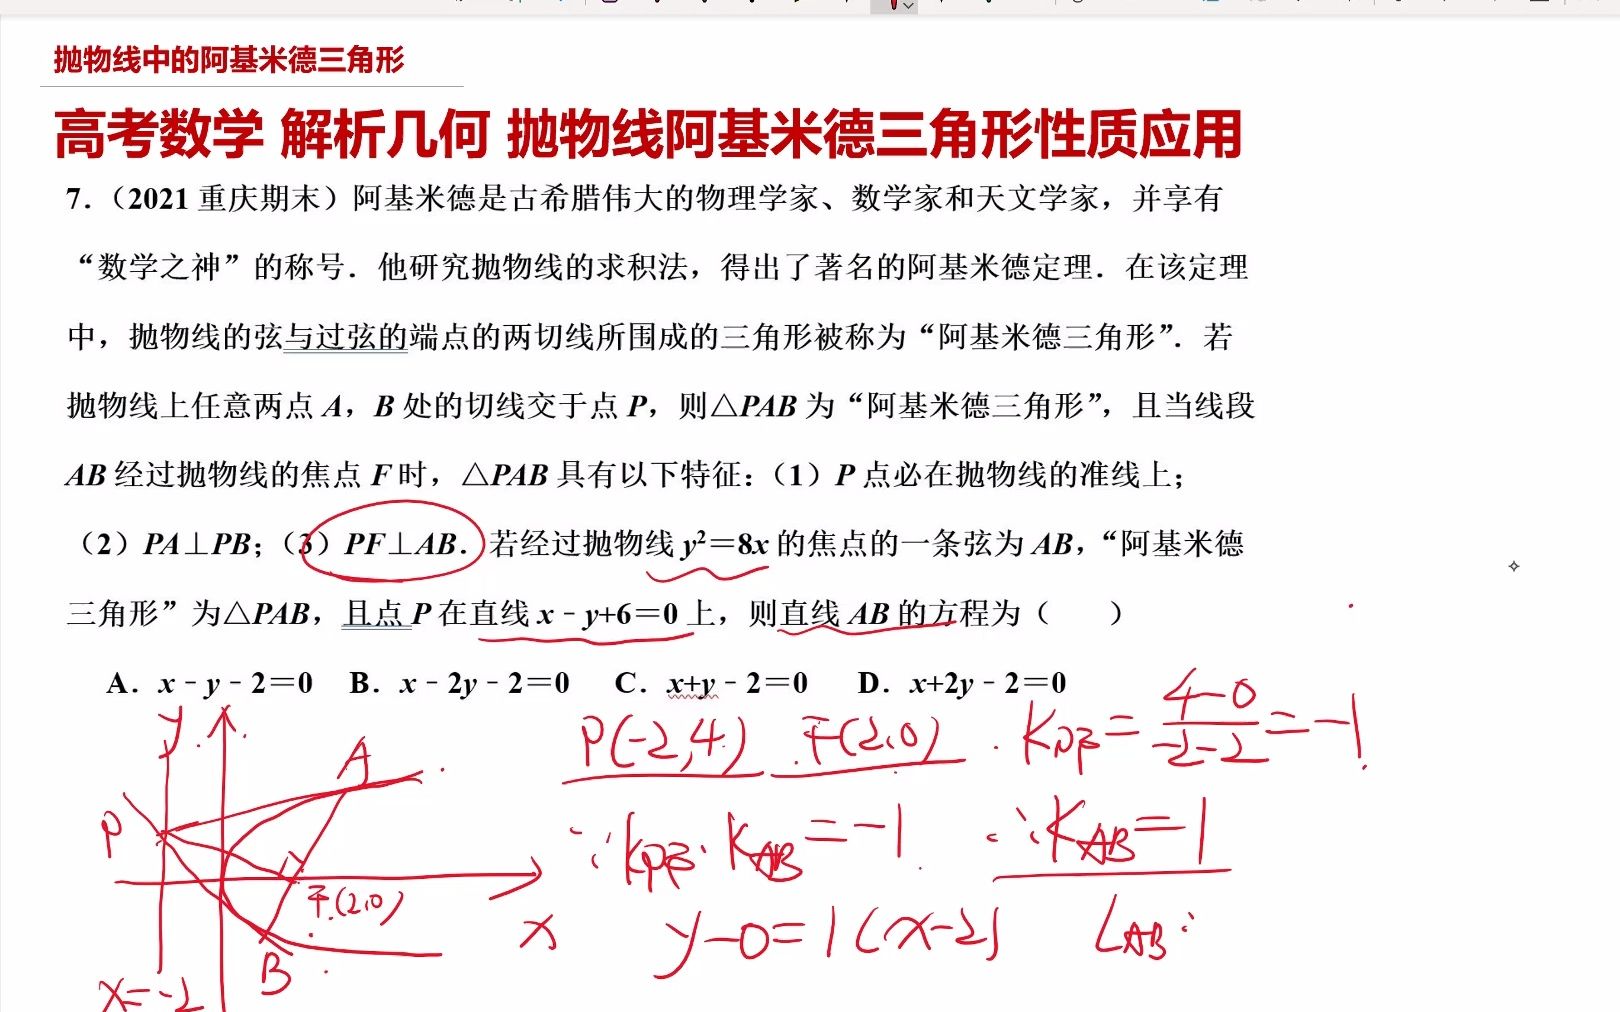 抛物线中的阿基米德三角形
高考数学 解析几何 抛物线阿基米德三角形性质应用
7.（2021 重庆期末）阿基米德是古希腊伟大的物理学家、数学家和天文学家，并享有
“数学之神”的称号．他研究抛物线的求积法，得出了著名的阿基米德定理．在该定理
中，抛物线的弦与过弦的端点的两切线所围成的三角形被称为“阿基米德三角形”．若
抛物线上任意两点 A，B 处的切线交于点 P，则△PAB 为“阿基米德三角形”，且当线段
AB 经过抛物线的焦点 F 时，△PAB 具有以下特征：（1）P 点必在抛物线的准线上；
（2）PA⊥PB；（3）PF⊥AB．若经过抛物线 y²＝8x 的焦点的一条弦为 AB，“阿基米德
三角形”为△PAB，且点 P 在直线 x﹣y+6＝0 上，则直线 AB 的方程为（　　）
A．x﹣y﹣2＝0 B．x﹣2y﹣2＝0 C．x+y﹣2＝0 D．x+2y﹣2＝0
P(-2,4) F(2,0) K_PF = (4-0)/(-2-2) = -1
∵ K_PF · K_AB = -1 ∴ K_AB = 1
y-0=1(x-2) L_AB:
y
A
P
F(2,0)
x
B
x=-2